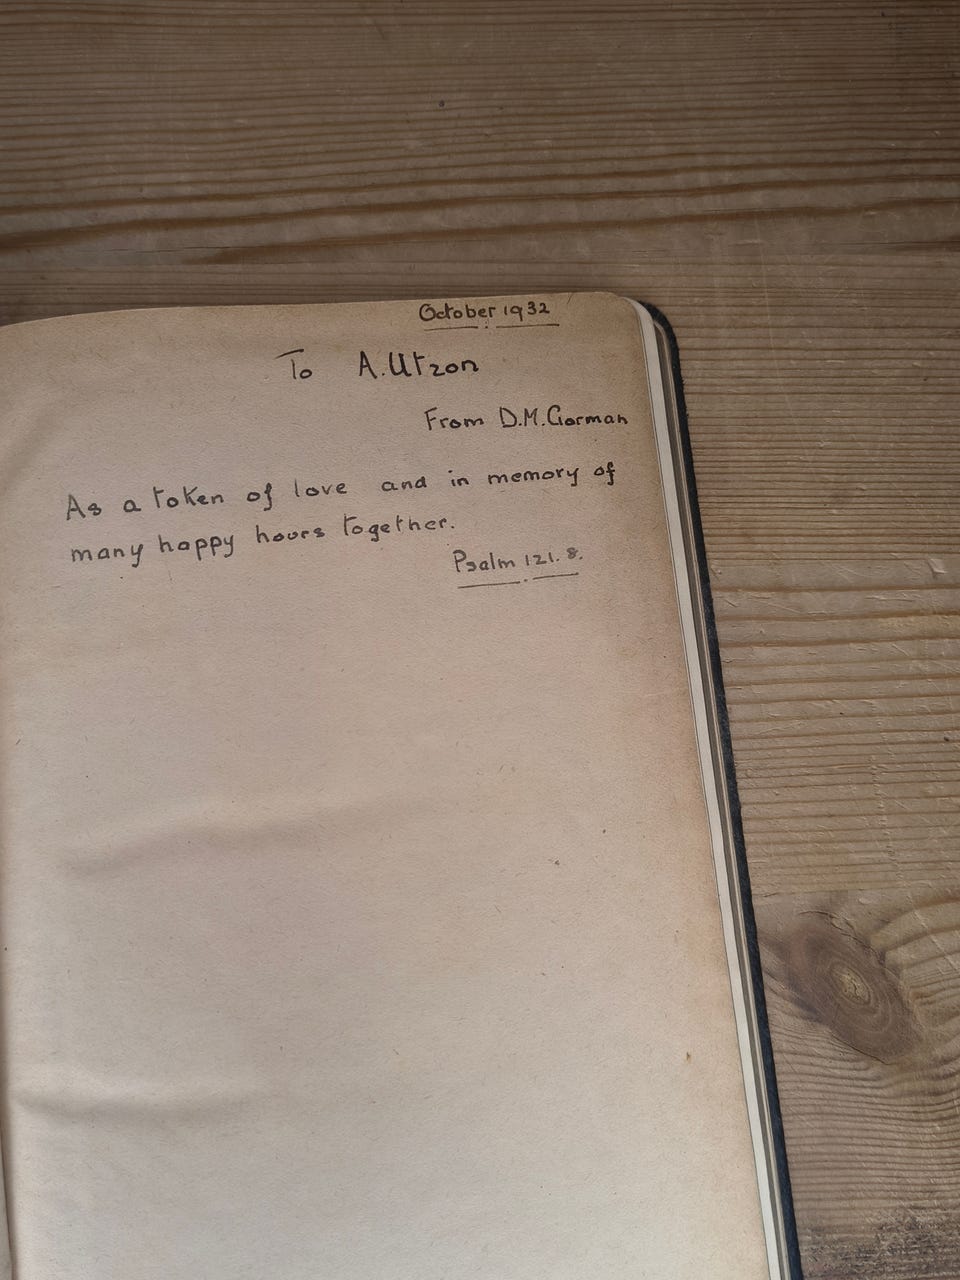 October 1932
To A. Utzon
From D.M. Gorman
As a token of love and in memory of
many happy hours together.
Psalm 121. 8.